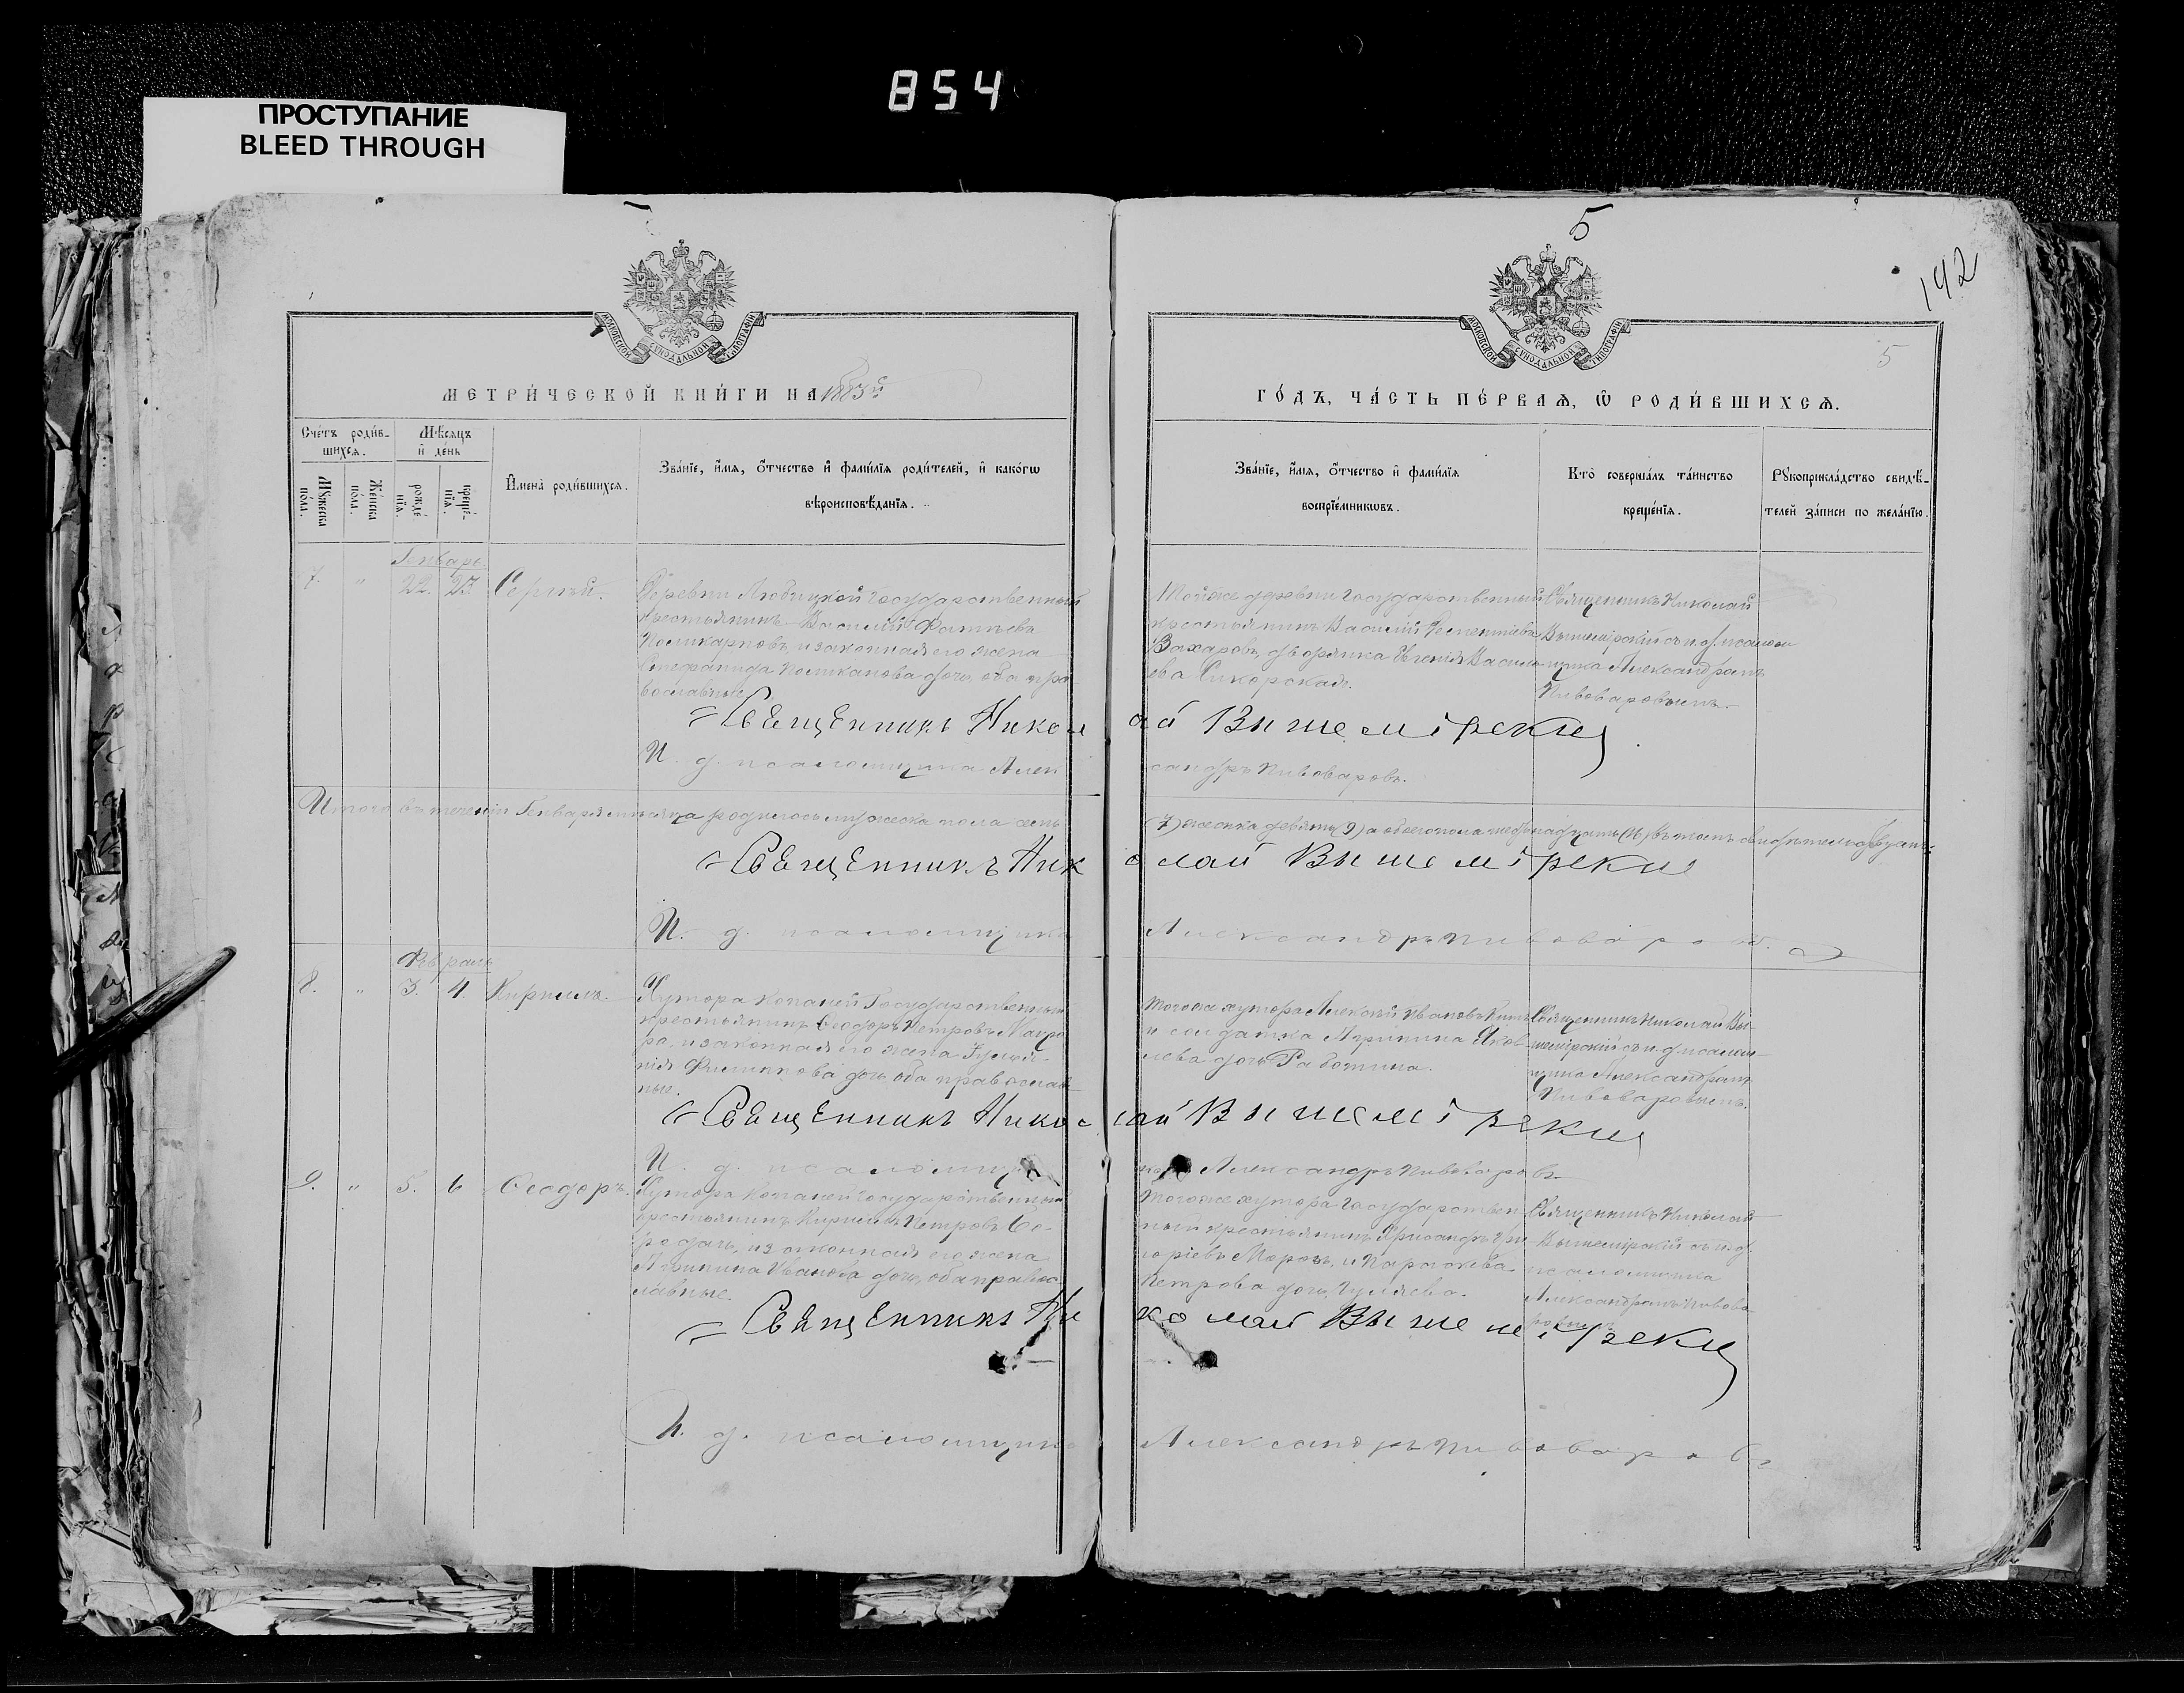 854
ПРОСТУПАНИЕ
BLEED THROUGH
5
192
МОСКОВСКОЙ СѴНОДАЛЬНОЙ ТѴПОГРАФІИ
МОСКОВСКОЙ СѴНОДАЛЬНОЙ ТѴПОГРАФІИ
5
МЕТРИ́ЧЕСКОЙ КНИ́ГИ НА 1883й
ГО́ДЪ, ЧА́СТЬ ПЕ́РВАѦ, Ѿ РОДИ́ВШИХСѦ.
Сче́тъ роди́в-
шихсѧ.
Мѣ́сяцъ
и҆ де́нь
Мꙋ́жеска по́ла.
Же́нска по́ла.
рожде́нїѧ.
креще́нїѧ.
И҆мена̀ роди́вшихсѧ.
Зва́нїе, и҆́мѧ, ѻ҆́тчество и҆ фами́лїѧ роди́телей, и҆ како́гѡ
вѣроисповѣ́данїѧ.
Зва́нїе, и҆́мѧ, ѻ҆́тчество и҆ фами́лїѧ
воспрїе́мникѡвъ.
Кто̀ соверша́лъ та́инство
креще́нїѧ.
Рꙋкоприкла́дство свидѣ́-
телей за́писи по жела́нїю.
Январь
7. " 22. 23. Сергѣй.
Деревни Любицкой государственный
крестьянинъ Василій
Поликарповъ, и законная его жена
Стефанида дочь, оба пра-
вославные.
Тойже деревни государственный
крестьянинъ Василій
Захаровъ, дворянка Евгенія Василь-
ева Сикорская.
Священникъ Николай
Вышемірскій съ и. д. псалом-
щика Александромъ
Пивоваровымъ.
Священникъ Николай Вышемірскій
И. д. псаломщика Александръ Пивоваровъ.
Итого въ теченіи Января мѣсяца родилось мужеска пола семь (7) женска девять (9) а обоего пола шестнадцать (16)
Священникъ Николай Вышемірскій
И. д. псаломщика Александръ Пивоваровъ.
Февраль
8. " 3. 4. Кириллъ.
Хутора Копаней Государственный
крестьянинъ Ѳеодоръ Петровъ
и законная его жена
Филиппова дочь оба православ-
ные.
Тогоже хутора Алексѣй Ивановъ
и солдатка Агрипина Яков-
лева дочь Работина.
Священникъ Николай Вы-
шемірскій съ и. д. псалом-
щика Александромъ
Пивоваровымъ.
Священникъ Николай Вышемірскій
И. д. псаломщика Александръ Пивоваровъ.
9. " 5. 6 Ѳеодоръ.
Хутора Копаней государственный
крестьянинъ Кириллъ Петровъ
и законная его жена
Агрипина Иванова дочь, оба правос-
лавные.
Тогоже хутора государствен-
ный крестьянинъ Гри-
горіевъ Морозъ, и Параскева
Петрова дочь Гуляева.
Священникъ Николай
Вышемірскій съ и. д.
псаломщика
Александромъ Пивова-
ровымъ
Священникъ Николай Вышемірскій
И. д. псаломщика Александръ Пивоваровъ